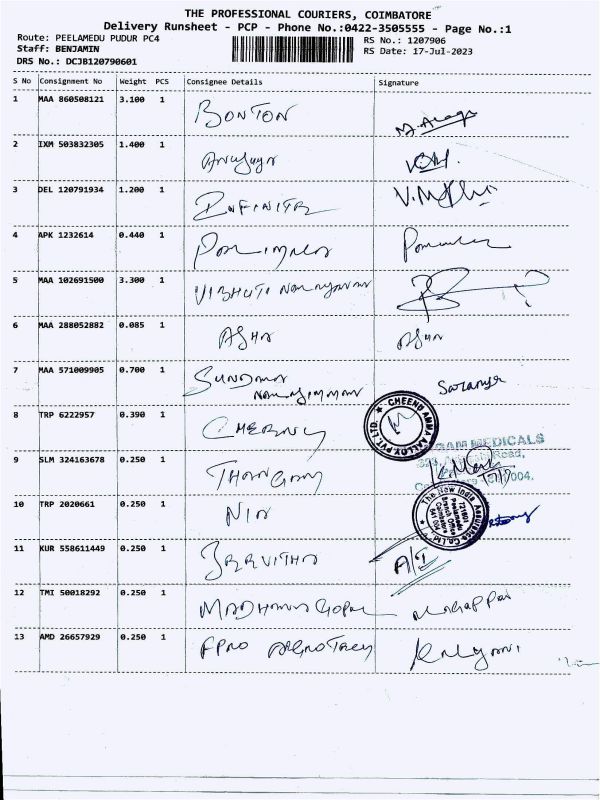 THE PROFESSIONAL COURIERS, COIMBATORE
Delivery Runsheet - PCP - Phone No.:0422-3505555 - Page No.:1
Route: PEELAMEDU PUDUR PC4
RS No.: 1207906
Staff: BENJAMIN
RS Date: 17-Jul-2023
DRS No.: DCJB120790601
S No Consignment No Weight PCS Consignee Details Signature
1 MAA 860508121 3.100 1 BONTON
2 IXM 503832305 1.400 1
3 DEL 120791934 1.200 1 INFINITE
4 APK 1232614 0.440 1
5 MAA 102691500 3.300 1 VIBHUTI
6 MAA 288052882 0.085 1 ASHA
7 MAA 571009905 0.700 1 SUNDARA Saranya
8 TRP 6222957 0.390 1
CHEENO AMMA ALLOY PVT. LTD.
MEDICALS
9 SLM 324163678 0.250 1
Road,
004.
10 TRP 2020661 0.250 1 NIA
The New India Assurance Co. Ltd.
721603
Peelamedu
Branch Office
Coimbatore
641 004
11 KUR 558611449 0.250 1
12 TMI 50018292 0.250 1 MADHANA GOPAL
13 AMD 26657929 0.250 1 Kalyani